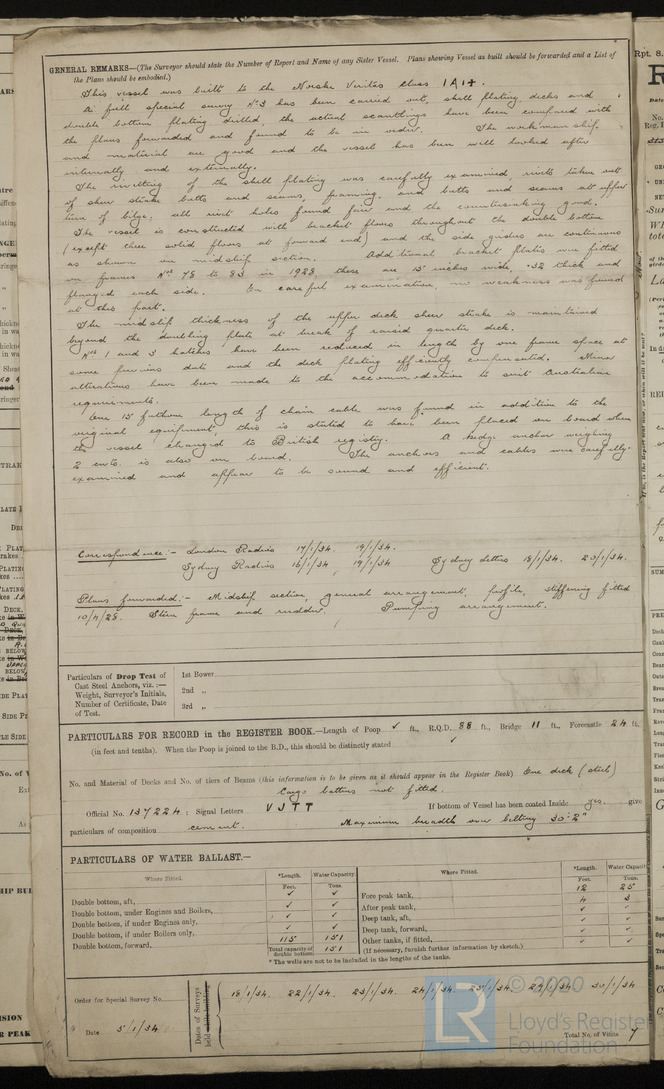 GENERAL REMARKS—(The Surveyor should state the Number of Report and Name of any Sister Vessel. Plans showing Vessel as built should be forwarded and a List of
the Plans should be embodied.)
This vessel was built to the Norske Veritas class 1A1+.
A full special survey No 3 has been carried out, shell plating, decks and
double bottom plating drilled, the actual scantlings have been compared with
the plans forwarded and found to be in order. The workmanship
and material are good and the vessel has been well looked after
internally and externally.
The riveting of the shell plating was carefully examined, rivets taken out
of sheer strake butts and seams, framing, and butts and seams at upper
turn of bilge; all rivet holes found fair and the countersinking good.
The vessel is constructed with bracket floors throughout the double bottom
(except three solid floors at forward end) and the side girders are continuous
as shown on midship section. Additional bracket plates were fitted
on frames Nos 78 to 83 in 1928, these are 15 inches wide, .32 thick and
flanged each side. On careful examination, no weakness was found
at this part.
The midship thickness of the upper deck sheer strake is maintained
beyond the doubling plate at break of raised quarter deck.
Nos 1 and 3 hatches have been reduced in length by one frame space at
some previous date and the deck plating efficiently compensated. Minor
alterations have been made to the accommodation to suit Australian
requirements.
One 15 fathom length of chain cable was found in addition to the
original equipment, this is stated to have been placed on board when
the vessel changed to British registry. A kedge anchor weighing
2 cwts. is also on board. The anchors and cables were carefully
examined and appear to be sound and efficient.
Correspondence:- London Radios 17/1/34. 19/1/34.
Sydney Radios 16/1/34 19/1/34 Sydney Letters 18/1/34. 23/1/34.
Plans forwarded:- Midship section, general arrangement, profile, stiffening fitted
10/4/28. Stern frame and rudder. Pumping arrangement.
Particulars of Drop Test of
Cast Steel Anchors, viz.:—
Weight, Surveyor's Initials,
Number of Certificate, Date
of Test.
1st Bower
2nd „
3rd „
PARTICULARS FOR RECORD in the REGISTER BOOK.—Length of Poop ✓ ft., R.Q.D. 88 ft., Bridge 11 ft., Forecastle 24 ft.
(in feet and tenths). When the Poop is joined to the B.D., this should be distinctly stated ✓
No. and Material of Decks and No. of tiers of Beams (this information is to be given as it should appear in the Register Book) One deck (steel)
Cargo battens not fitted.
Official No. 137224; Signal Letters VJTT If bottom of Vessel has been coated Inside yes. give
particulars of composition cement. Maximum breadth over belting 30'-2"
PARTICULARS OF WATER BALLAST.—
Where Fitted. *Length. Water Capacity. Where Fitted. *Length. Water Capacity
Feet. Tons. Feet. Tons.
Double bottom, aft, ✓ ✓ Fore peak tank, 12 25
Double bottom, under Engines and Boilers, ✓ ✓ After peak tank, 4 3
Double bottom, if under Engines only, ✓ ✓ Deep tank, aft, ✓ ✓
Double bottom, if under Boilers only, ✓ ✓ Deep tank, forward, ✓ ✓
Double bottom, forward, 115 151 Other tanks, if fitted, ✓ ✓
Total capacity of double bottom 151 (If necessary, furnish further information by sketch.)
* The wells are not to be included in the lengths of the tanks.
Order for Special Survey No.
Date 5/1/34
Dates of Surveys
held while building
18/1/34. 22/1/34. 23/1/34. 24/1/34. 25/1/34. 29/1/34 30/1/34
Total No. of Visits 7
© 2020
LR
Lloyd's Register
Foundation
Rpt. 8.